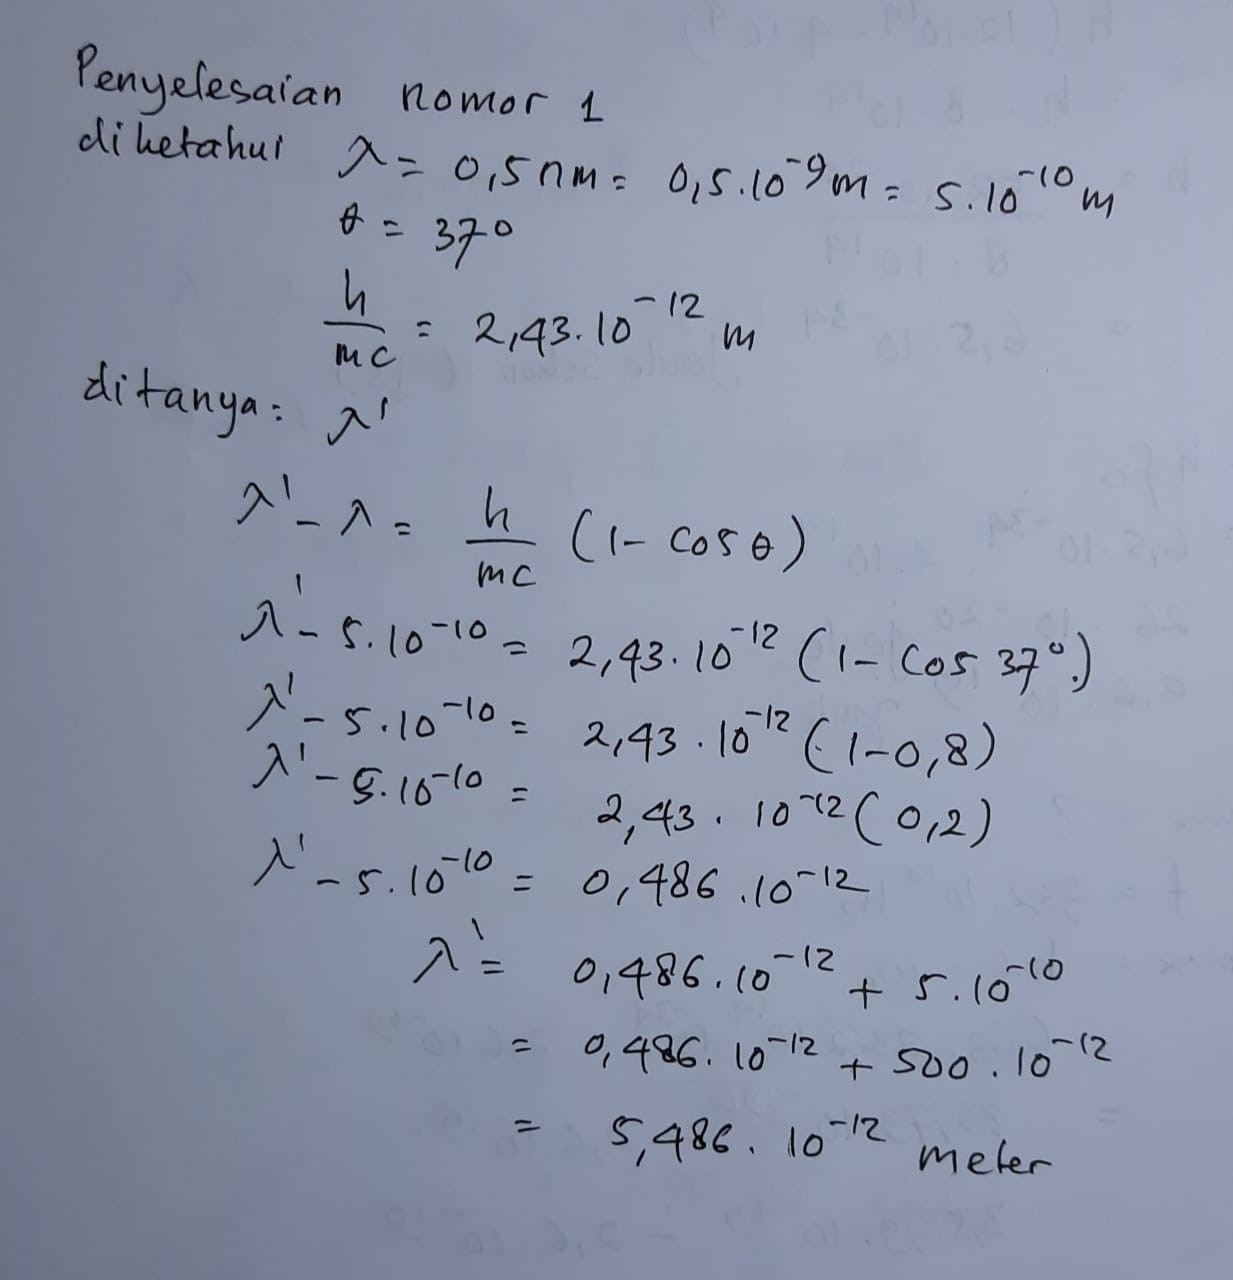 Penyelesaian nomor 1
diketahui λ = 0,5 nm = 0,5.10⁻⁹ m = 5.10⁻¹⁰ m
θ = 37°
h/mc = 2,43.10⁻¹² m
ditanya: λ'
λ' - λ = h/mc (1 - cos θ)
λ' - 5.10⁻¹⁰ = 2,43.10⁻¹² (1 - cos 37°)
λ' - 5.10⁻¹⁰ = 2,43.10⁻¹² (1-0,8)
λ' - 5.10⁻¹⁰ = 2,43.10⁻¹² (0,2)
λ' - 5.10⁻¹⁰ = 0,486.10⁻¹²
λ' = 0,486.10⁻¹² + 5.10⁻¹⁰
= 0,486.10⁻¹² + 500.10⁻¹²
= 5,486.10⁻¹² meter